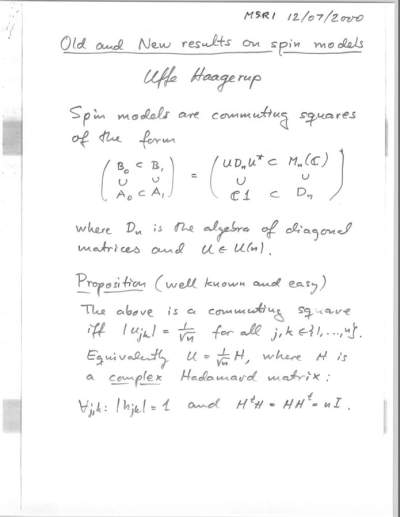 MSRI 12/07/2000
Old and New results on spin models
Uffe Haagerup
Spin models are commuting squares
of the form
( B₀ ⊂ B₁ ) = ( UDₙU* ⊂ Mₙ(ℂ) )
( ∪ ∪ ) ( ∪ ∪ )
( A₀ ⊂ A₁ ) ( ℂ1 ⊂ Dₙ )
where Dₙ is the algebra of diagonal
matrices and U ∈ U(n).
Proposition (well known and easy)
The above is a commuting square
iff |uⱼₖ| = 1/√n for all j,k ∈ {1,...,n}.
Equivalently U = 1/√n H, where H is
a complex Hadamard matrix:
∀j,k: |hⱼₖ| = 1 and HᵗH = HHᵗ = nI.